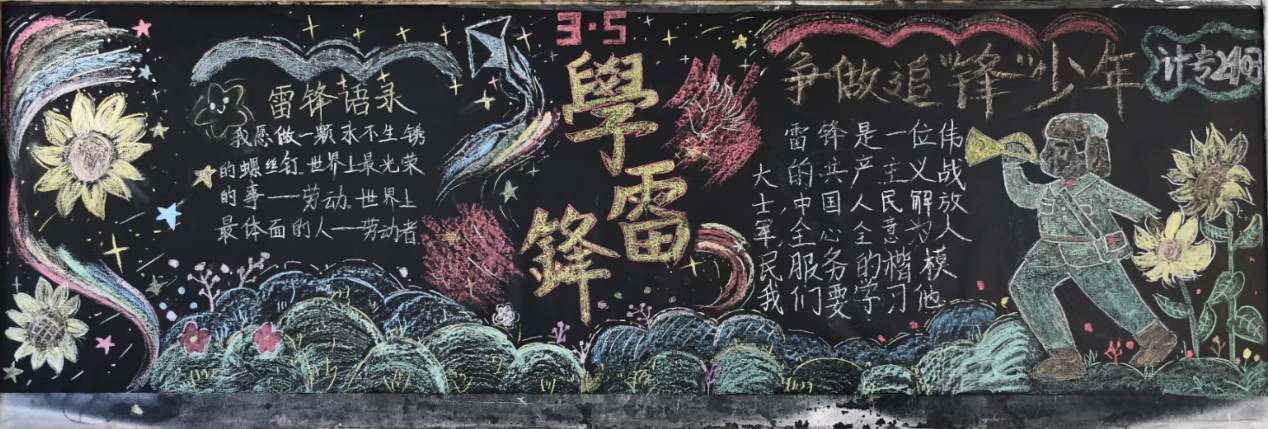 雷锋语录
我愿做一颗永不生锈
的螺丝钉.世界上最光荣
的事——劳动.世界上
最体面的人——劳动者
3·5
學
雷
鋒
争做追“锋”少年
雷锋是一位伟
大的共产主义战
士,中国人民解放
军,全心全意为人
民服务的楷模
我们要学习他
计专